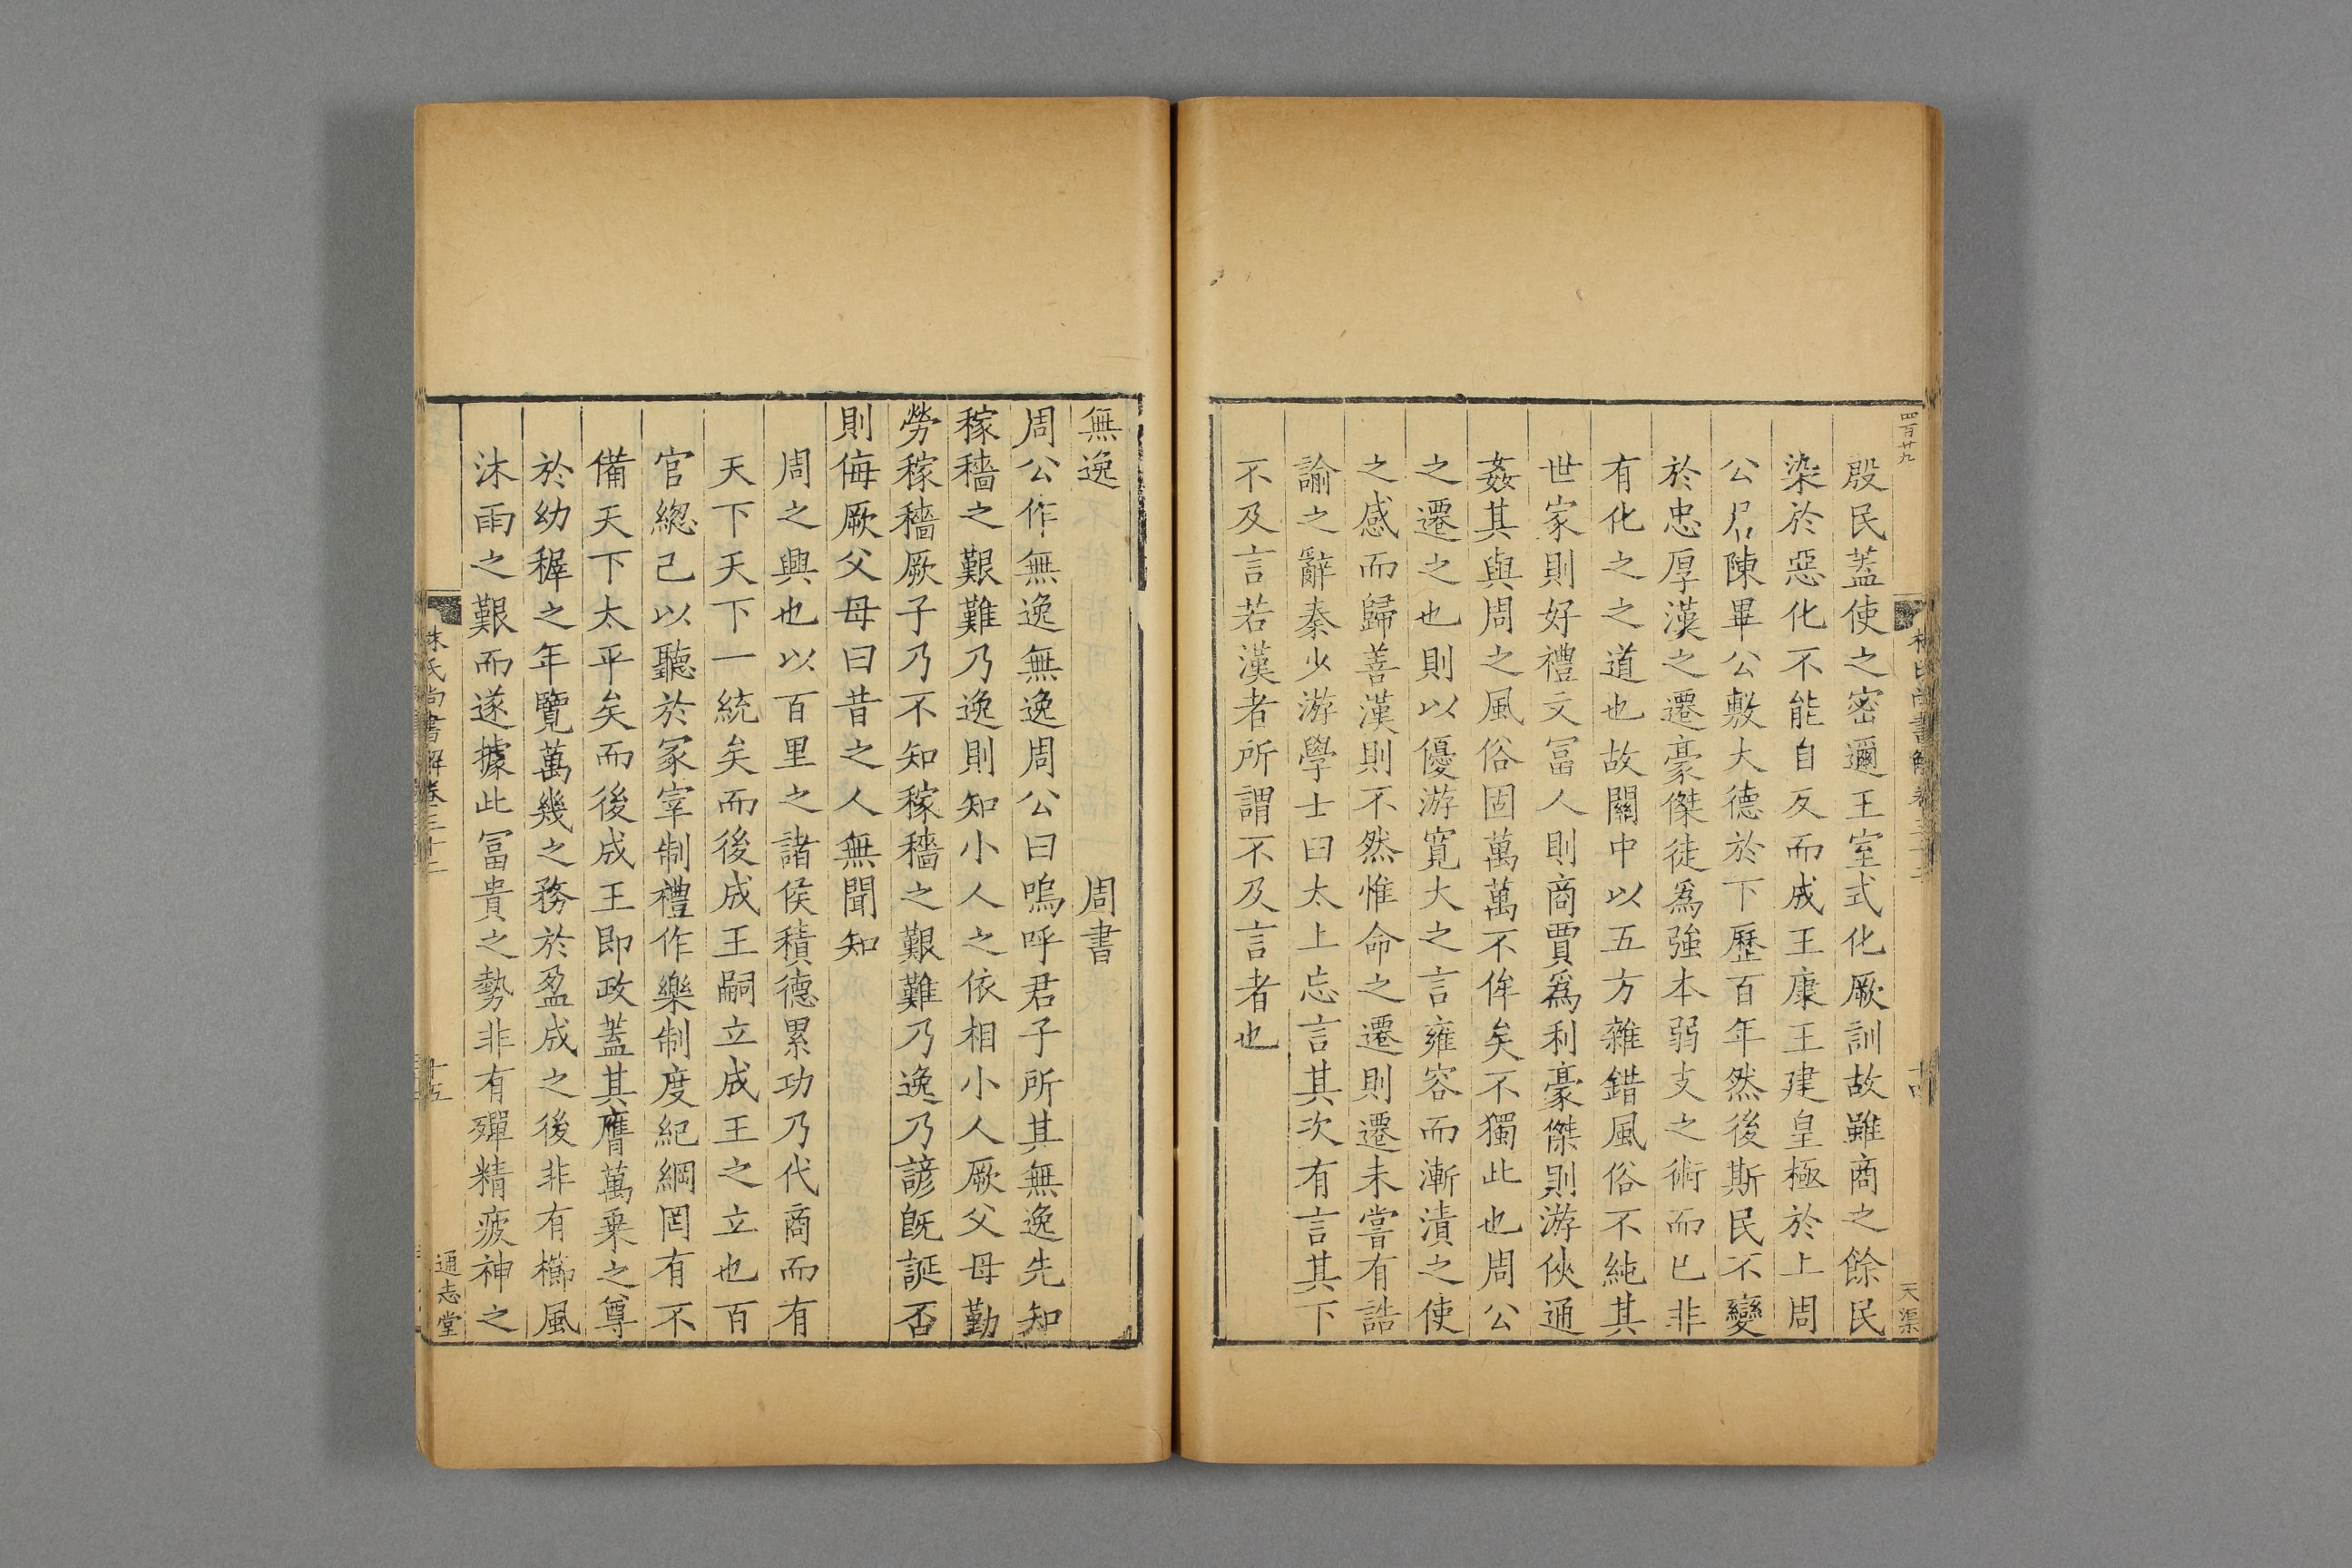 四百廿九
殷民蓋使之密邇王室式化厥訓故雖商之餘民
染於惡化不能自反而成王康王建皇極於上周
公君陳畢公敷大德於下歷百年然後斯民不變
於忠厚漢之遷豪傑徒爲強本弱支之術而已非
有化之之道也故關中以五方雜錯風俗不純其
世家則好禮文冨人則商賈爲利豪傑則游俠通
姦其與周之風俗固萬萬不侔矣不獨此也周公
之遷之也則以優游寬大之言雍容而漸漬之使
之感而歸善漢則不然惟命之遷則遷未嘗有誥
諭之辭秦少游學士曰太上忘言其次有言其下
不及言若漢者所謂不及言者也
天渠
無逸 周書
周公作無逸無逸周公曰嗚呼君子所其無逸先知
稼穡之艱難乃逸則知小人之依相小人厥父母勤
勞稼穡厥子乃不知稼穡之艱難乃逸乃諺旣誕否
則侮厥父母曰昔之人無聞知
周之興也以百里之諸侯積德累功乃代商而有
天下天下一統矣而後成王嗣立成王之立也百
官緫己以聽於冢宰制禮作樂制度紀綱罔有不
備天下太平矣而後成王即政蓋其膺萬乗之尊
於幼穉之年覽萬幾之務於盈成之後非有櫛風
沐雨之艱而遂據此冨貴之勢非有殫精疲神之
林氏尚書解卷三十二
十五
通志堂